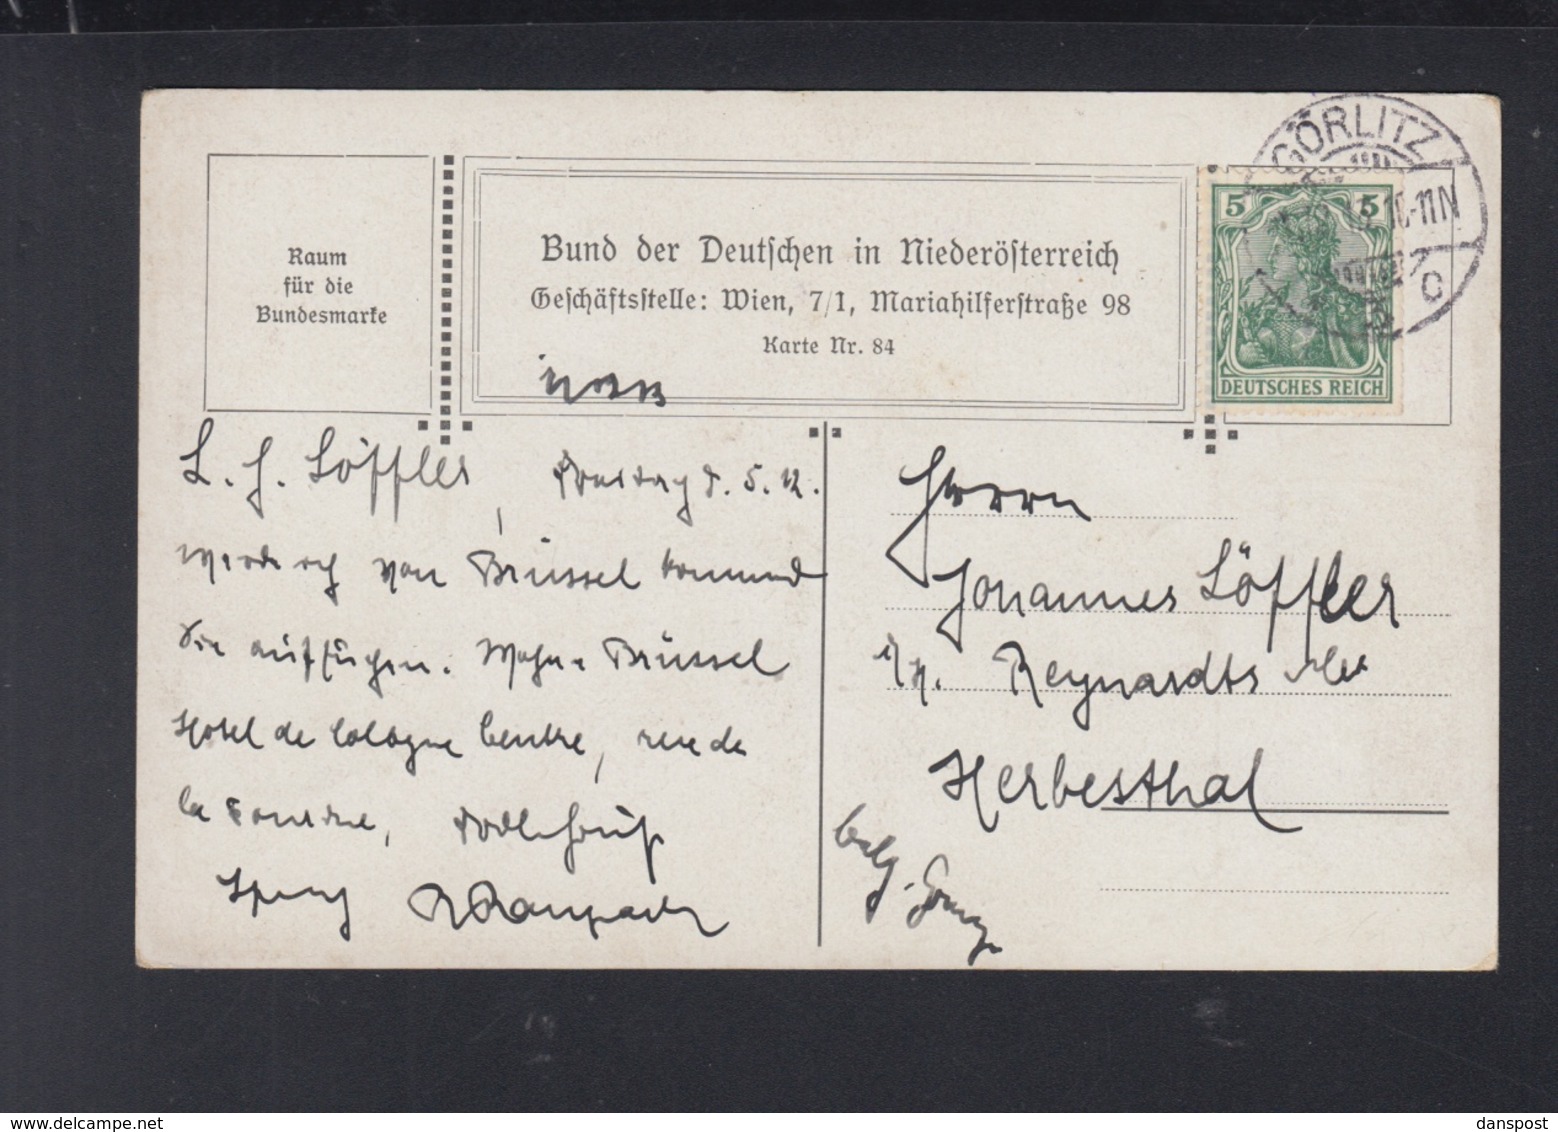 Raum
für die
Bundesmarke
Bund der Deutschen in Niederösterreich
Geschäftsstelle: Wien, 7/1, Mariahilferstraße 98
Karte Nr. 84
GÖRLITZ
10-11N
C
5 5
DEUTSCHES REICH
L. H. Löffler, d. 5. 12.
werde ich von Brüssel kommend
Sie aufsuchen. Wohne Brüssel
Hotel de Cologne Centre, rue de
la
Herrn
Johannes Löffler
Reynardts
Herbesthal
belg. Grenze
danspost